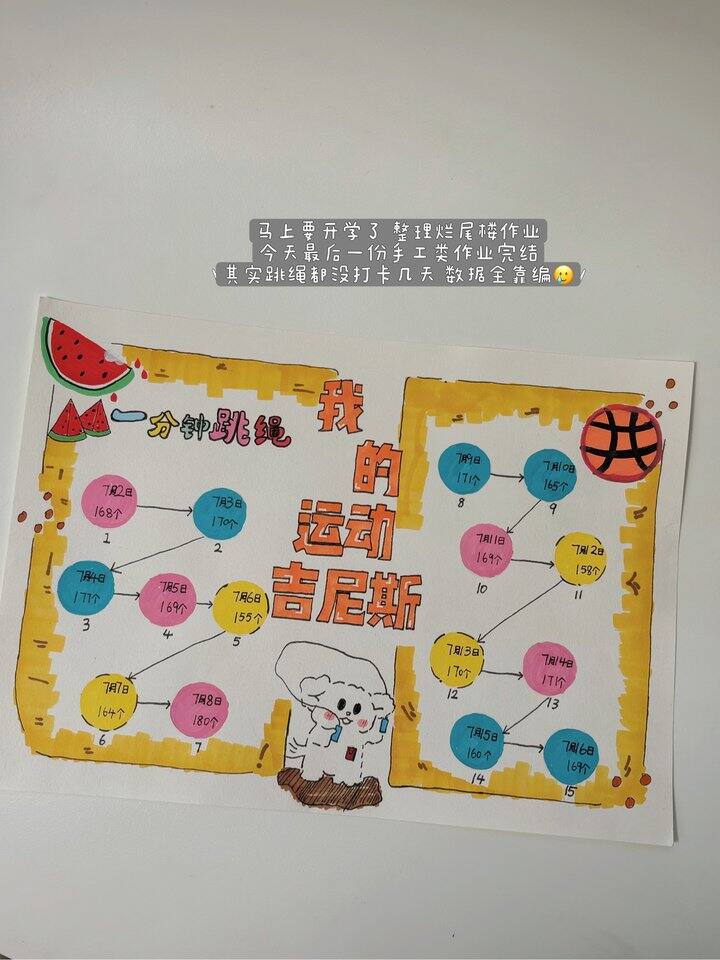 马上要开学了 整理烂尾楼作业
今天最后一份手工类作业完结
其实跳绳都没打卡几天 数据全靠编🥲
我
的
运动
吉尼斯
一分钟跳绳
7月2日
168个
1
7月3日
170个
2
7月4日
177个
3
7月5日
169个
4
7月6日
155个
5
7月7日
164个
6
7月8日
180个
7
7月9日
171个
8
7月10日
165个
9
7月11日
169个
10
7月12日
158个
11
7月13日
170个
12
7月14日
171个
13
7月15日
160个
14
7月16日
169个
15